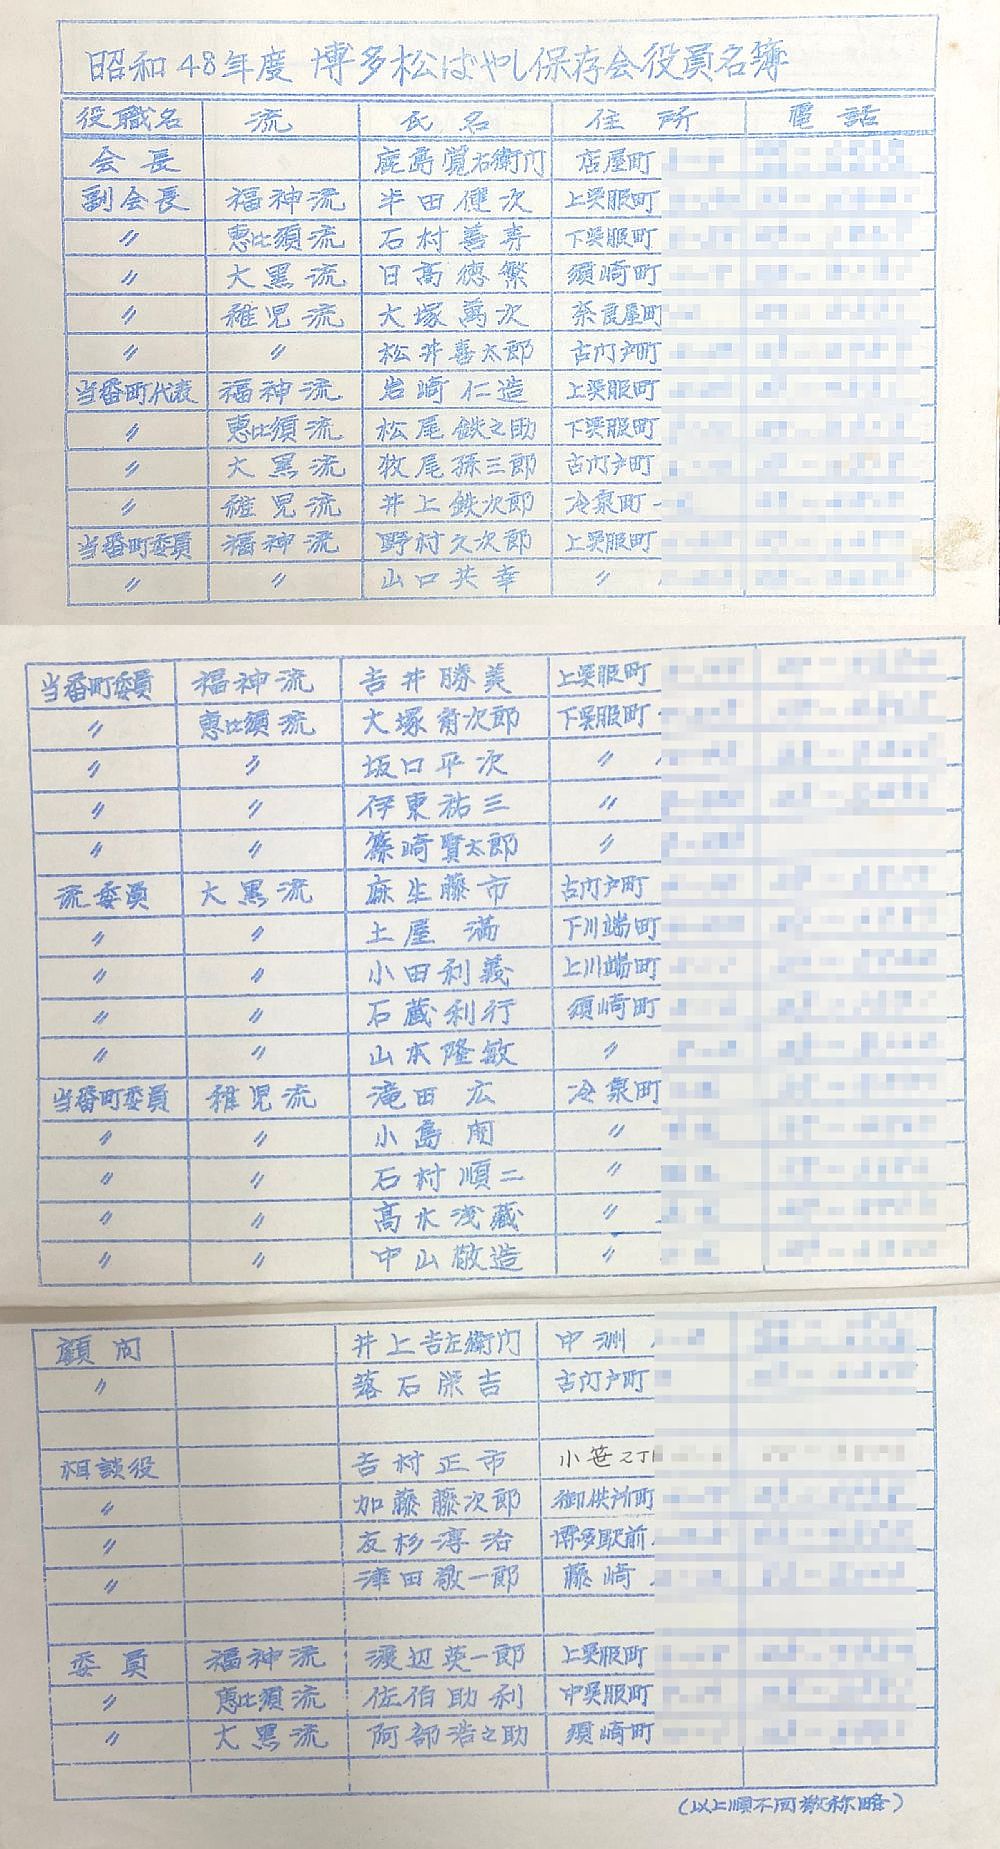 昭和48年度 博多松ばやし保存会役員名簿
役職名 流 氏名 住所 電話
会長 鹿島覚右衛门 店屋町
副会長 福神流 半田健次 上呉服町
〃 恵比須流 石村善 下呉服町
〃 大黒流 日高徳繁 須崎町
〃 稚児流 大塚萬次 奈良屋町
〃 〃 松井喜太郎 古门戸町
当番町代表 福神流 岩崎仁造 上呉服町
〃 恵比須流 松尾鉄之助 下呉服町
〃 大黒流 牧尾孫三郎 古门戸町
〃 稚児流 井上鉄次郎 冷泉町
当番町委員 福神流 野村久次郎 上呉服町
〃 〃 山口英幸 〃
当番町委員 福神流 吉井勝美 上呉服町
〃 恵比須流 大塚 次郎 下呉服町
〃 〃 坂口平次 〃
〃 〃 伊東祐三 〃
〃 〃 篠崎賢太郎 〃
流委員 大黒流 麻生藤市 古门戸町
〃 〃 土屋満 下川端町
〃 〃 小田利義 上川端町
〃 〃 石蔵利行 須崎町
〃 〃 山本隆敏 〃
当番町委員 稚児流 滝田広 冷泉町
〃 〃 小島 〃
〃 〃 石村順二 〃
〃 〃 高木浅蔵 〃
〃 〃 中山敬造 〃
顧问 井上吉左衛门 中洲
〃 落石栄吉 古门戸町
相談役 吉村正市 小笹2丁
〃 加藤藤次郎 御供所町
〃 友杉淳治 博多駅前
〃 津田敬一郎 藤崎
委員 福神流 渡辺英一郎 上呉服町
〃 恵比須流 佐伯助利 中呉服町
〃 大黒流 阿部浩之助 須崎町
(以上順不同敬称略)